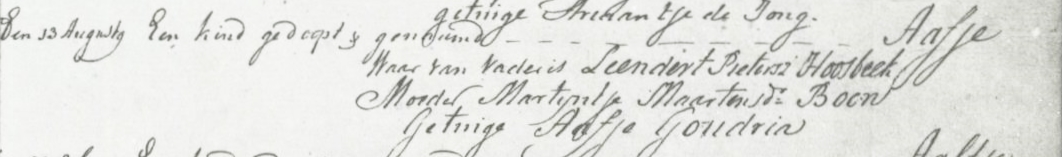 getuige Ariaantje de Jong.
Den 13 Augusty Een kind gedoopt & genaamd Aafje
Waar van vader is Leendert Pietersz Hoosbeek
Moeder Martyntje Maartensdr Boon
Getuige Aafje Goudria